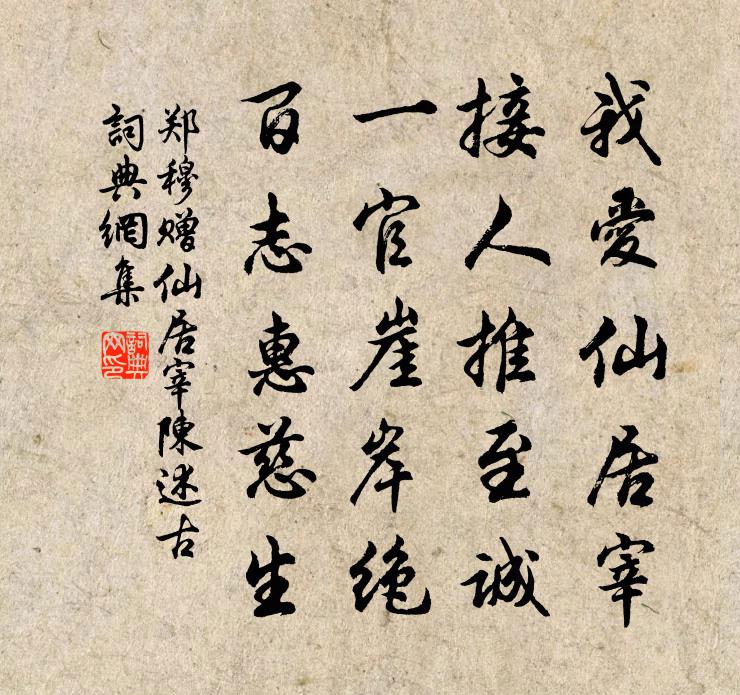 我愛仙居宰
接人推至誠
一官崖岸绝
百志惠慈生
郑穆赠仙居宰陳述古
詞典網集
詞典网印